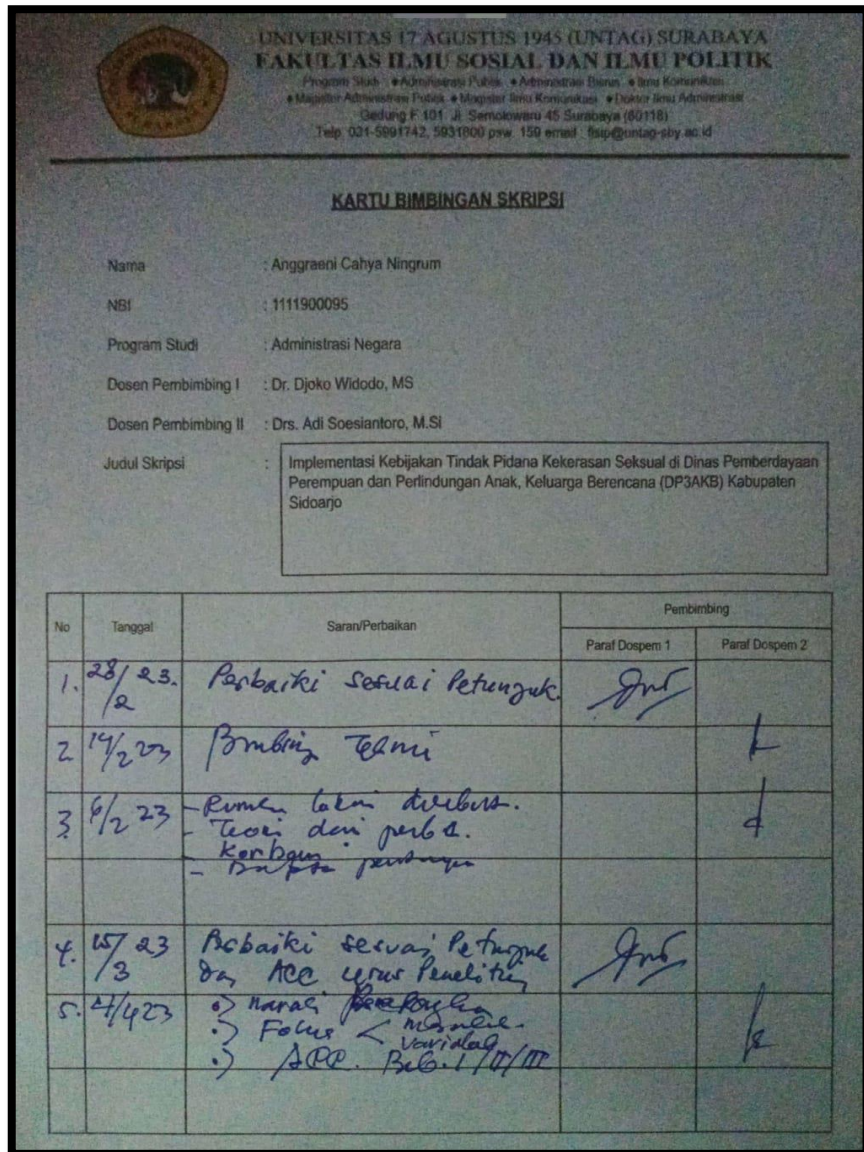 UNIVERSITAS 17 AGUSTUS 1945 (UNTAG) SURABAYA
FAKULTAS ILMU SOSIAL DAN ILMU POLITIK
Program Studi : • Administrasi Publik • Administrasi Bisnis • Ilmu Komunikasi
• Magister Administrasi Publik • Magister Ilmu Komunikasi • Doktor Ilmu Administrasi
Gedung F 101 Jl. Semolowaru 45 Surabaya (60118)
Telp. 031-5991742, 5931800 psw. 159 email : fisip@untag-sby.ac.id
KARTU BIMBINGAN SKRIPSI
Nama : Anggraeni Cahya Ningrum
NBI : 1111900095
Program Studi : Administrasi Negara
Dosen Pembimbing I : Dr. Djoko Widodo, MS
Dosen Pembimbing II : Drs. Adi Soesiantoro, M.SI
Judul Skripsi : Implementasi Kebijakan Tindak Pidana Kekerasan Seksual di Dinas Pemberdayaan
Perempuan dan Perlindungan Anak, Keluarga Berencana (DP3AKB) Kabupaten
Sidoarjo
No Tanggal Saran/Perbaikan Pembimbing
Paraf Dospem 1 Paraf Dospem 2
1. 28/2 23. Perbaiki sesuai Petunjuk.
2 14/2 23
3. 6/2 23 - Rumen
- Teori dari
- Korban
-
4. 15/3 23 Perbaiki sesuai Petunjuk
dan ACC urus Penelitian
5. 4/4 23 •) Narasi
•) Fokus < Masalah
variabel
•) ACC. Bab. I/II/III